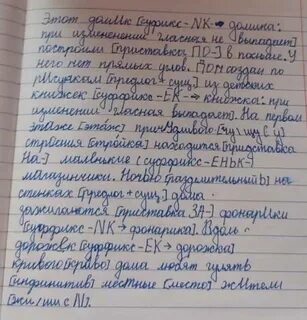 Этот домик [суффикс -ИК- → домика:
при изменении гласная не выпадает]
построили [приставка ПО-] в Польше. У
него нет прямых углов. Дом создан по
рисункам [предлог + сущ.] из детских
книжек [суффикс -ЕК- → книжка: при
изменении гласная выпадает]. На первом
этаже [этаж] причудливого [
строения [стройка] находятся [приставка
НА-] маленькие [суффикс -ЕНЬК-]
магазинчики. Ночью [разделительный Ь] на
стенках [предлог + сущ] дома
зажигаются [приставка ЗА-] фонарики
[суффикс -ИК → фонарика]. Вдоль
дорожек [суффикс -ЕК → дорожка]
кривого [криво] дома любят гулять
[инфинитив] местные [место] жители
[жи/ши с И].